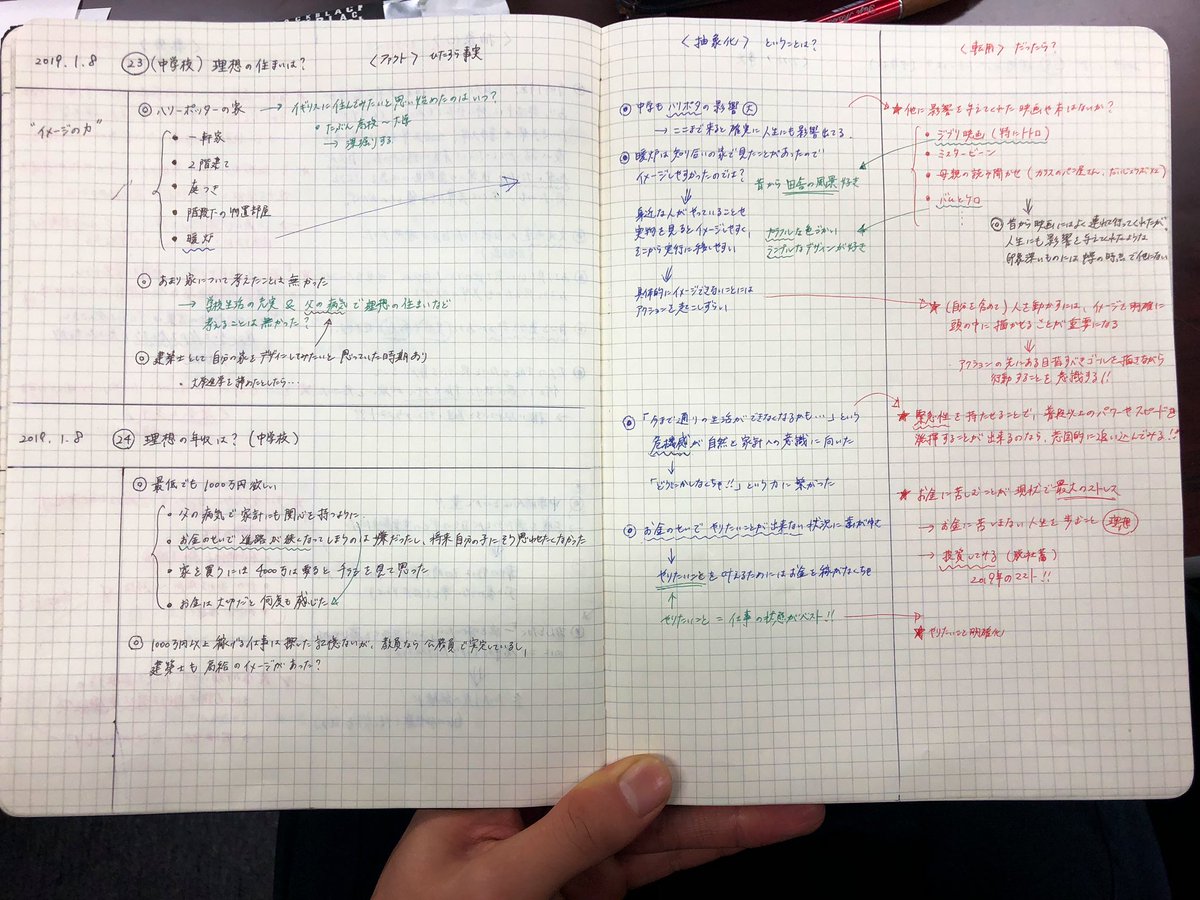 2019.1.8 ㉓(中学校) 理想の住まいは? 〈ファクト〉 ひたすら事実
"イメージの力"
◎ ハリーポッターの家 → イギリスに住んでみたいと思い始めたのはいつ?
・たぶん高校〜大学
→ 深掘りする
・一軒家
・2階建て
・庭つき
・階段下の物置部屋
・暖炉
◎ あまり家について考えたことは無かった
→ 学校生活の充実 & 父の病気で理想の住まいなど
考えることは無かった?
◎ 建築士として自分の家をデザインしてみたいと思っていた時期あり
・大学進学を諦めたとしたら…
2019.1.8 ㉔ 理想の年収は? (中学校)
◎ 最低でも1000万円欲しい
・父の病気で家計にも関心を持つように
・お金のせいで進路が狭くなってしまうのは嫌だったし、将来自分の子にそう思わせたくなかった
・家を買うには4000万は要るとチラシを見て思った
・お金は大切だと何度も感じた
◎ 1000万円以上稼げる仕事は探した記憶ないが、教員なら公務員で安定しているし、
建築士も高給のイメージがあった?
〈抽象化〉 ということは?
◎ 中学もハリポタの影響大
→ ここまで来ると確実に人生にも影響出てる。
◎ 暖炉は知り合いの家で見たことがあったので
イメージしやすかったのでは?
昔から田舎の風景好き
身近な人がやっていることや
実物を見るとイメージしやすく、
そこから実行に移しやすい
カラフルな色づかい
シンプルなデザインが好き
具体的にイメージできないことには
アクションを起こしずらい
◎ 「今まで通りの生活ができなくなるかも…」という
危機感が自然と家計への意識に向いた
「どうにかしなくちゃ!!」という力に繋がった
◎ お金のせいでやりたいことが出来ない状況に
やりたいことを叶えるためにはお金を稼がなくちゃ
やりたいこと = 仕事の状態がベスト!!
〈転用〉 だったら?
★ 他に影響を与えてくれた映画や本はないか?
・ジブリ映画 (特にトトロ)
・ミスタービーン
・母親の読み聞かせ (カラスのパン屋さん、だいじょうぶだいじょうぶ)
・バムとケロ
◎ 昔から映画にはよく連れて行ってくれたが、
人生にも影響を与えてくれたような
印象深いものには中学の時点で他にない
★ (自分を含めて) 人を動かすには、イメージを明確に
頭の中に描かせることが重要になる
・アクションの先にある目指すべきゴールを描きながら
行動することを意識する!!
★ 緊急性を持たせることで、普段以上のパワーやスピードを
発揮することが出来るのなら、意図的に追い込んでみる!!
★ お金に苦しむことが現状で最大のストレス
→ お金に苦しまない人生を歩むこと 理想
→ 投資してみる (脱社畜)
2019年のマスト!!
★ やりたいこと明確化